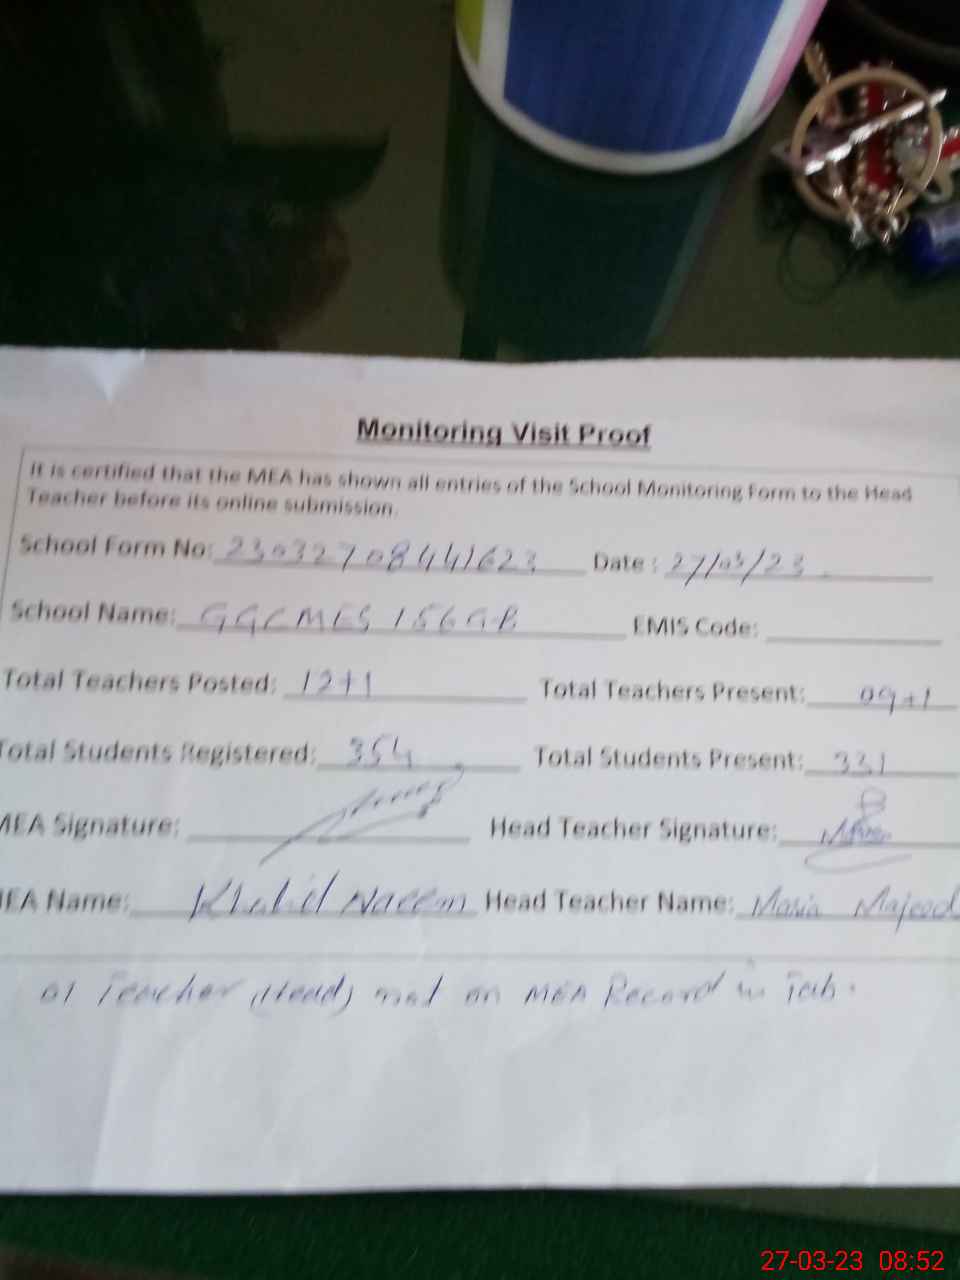 Monitoring Visit Proof
It is certified that the MEA has shown all entries of the School Monitoring Form to the Head
Teacher before its online submission.
School Form No: 23032708441623 Date : 27/03/23
School Name: GGCMES 156 GB EMIS Code:
Total Teachers Posted: 12+1 Total Teachers Present: 09+1
Total Students Registered: 354 Total Students Present: 331
MEA Signature: Head Teacher Signature:
MEA Name: Khalid Naeem Head Teacher Name: Maria Majeed
01 Teacher (Head) not on MEA Record in Tab.
27-03-23 08:52